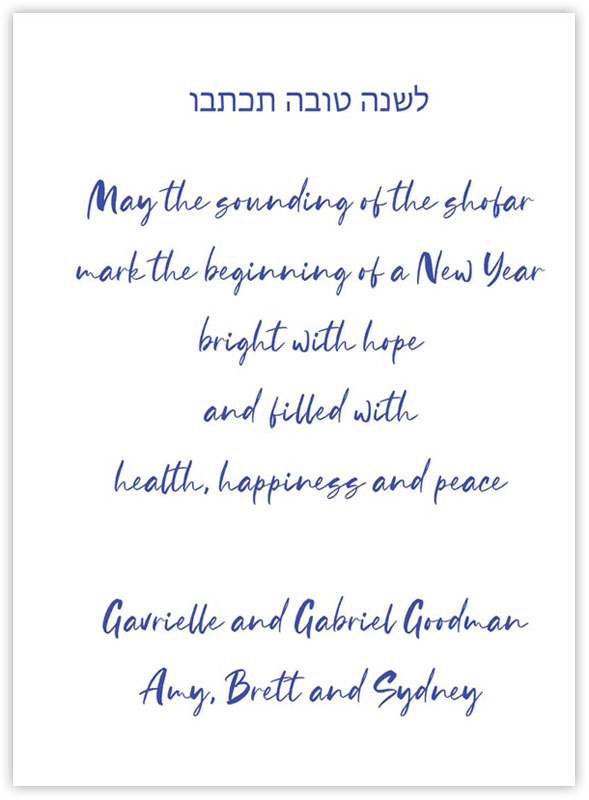 לשנה טובה תכתבו
May the sounding of the shofar
mark the beginning of a New Year
bright with hope
and filled with
health, happiness and peace
Gavrielle and Gabriel Goodman
Amy, Brett and Sydney